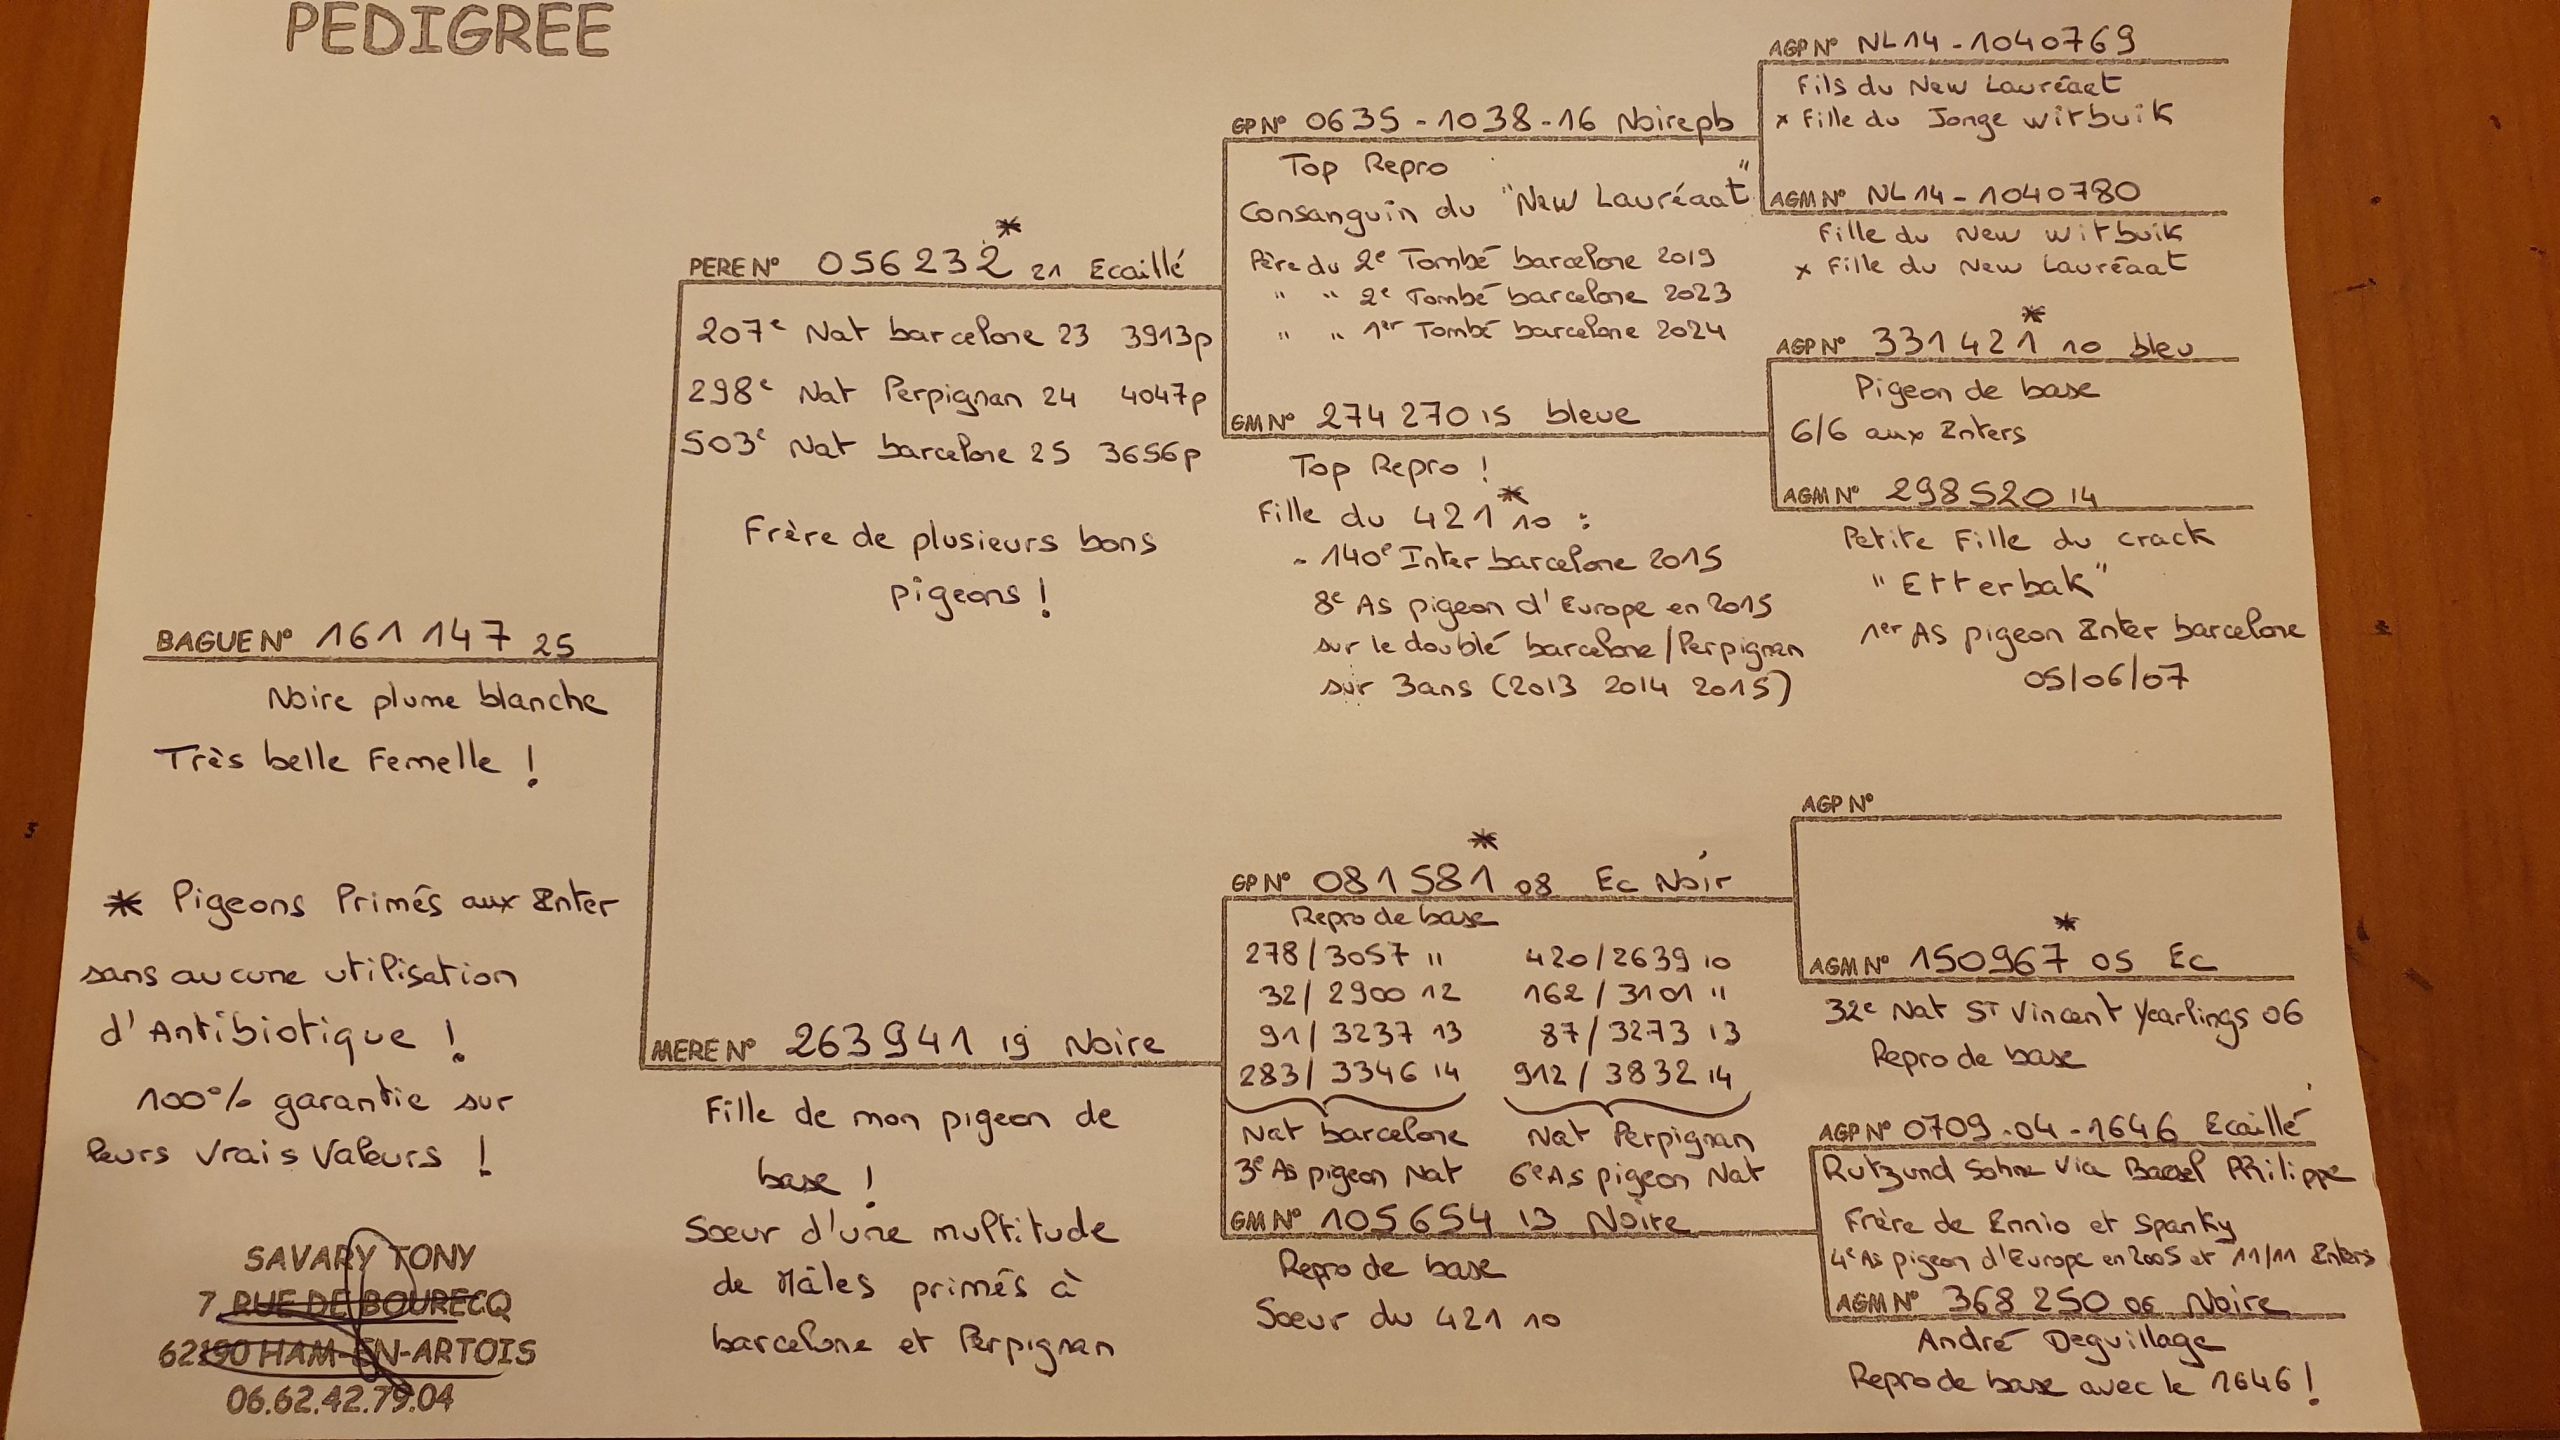 PEDIGREE
BAGUE N° 161 147 25
Noire plume blanche
Très belle Femelle !
* Pigeons Primés aux Inter
sans aucune utilisation
d'Antibiotique !
100% garantie sur
leurs vrais valeurs !
SAVARY TONY
7 RUE DE BOURECQ
62190 HAM-EN-ARTOIS
06.62.42.79.04
PERE N° 056232* 21 Ecaillé
207e Nat barcelone 23 3913p
298e Nat Perpignan 24 4047p
503e Nat barcelone 25 3656p
Frère de plusieurs bons
pigeons !
MERE N° 263941 19 Noire
Fille de mon pigeon de
base !
Sœur d'une multitude
de Mâles primés à
barcelone et Perpignan
GP N° 0635-1038-16 Noirepb
Top Repro
Consanguin du "New Lauréaat"
Père du 2e Tombé barcelone 2019
" " 2e Tombé barcelone 2023
" " 1er Tombé barcelone 2024
GM N° 274 270 15 bleue
Top Repro !
Fille du 421* 10 :
- 140e Inter barcelone 2015
8e As pigeon d'Europe en 2015
sur le doublé barcelone/Perpignan
sur 3ans (2013 2014 2015)
GP N° 081581* 08 Ec Noir
Repro de base
278/3057 11 420/2639 10
32/2900 12 162/3101 11
91/3237 13 87/3273 13
283/3346 14 912/3832 14
Nat barcelone Nat Perpignan
3e As pigeon Nat 6e As pigeon Nat
GM N° 105654 13 Noire
Repro de base
Sœur du 421 10
AGP N° NL14-1040769
Fils du New Lauréaat
x Fille du Jonge witbuik
AGM N° NL14-1040780
Fille du New witbuik
x Fille du New Lauréaat
AGP N° 331421* 10 bleu
Pigeon de base
6/6 aux Inters
AGM N° 298520 14
Petite Fille du crack
"Etterbak"
1er As pigeon Inter barcelone
05/06/07
AGP N°
AGM N° 150967* 05 Ec
32e Nat St Vincent Yearlings 06
Repro de base
AGP N° 0709-04-1646 Ecaillé
Rutzund Sohne via Philippe
Frère de Ennio et Spanky
4e As pigeon d'Europe en 2005 et 11/11 Inters
AGM N° 368 250 06 Noire
André Deguillage
Repro de base avec le 1646 !